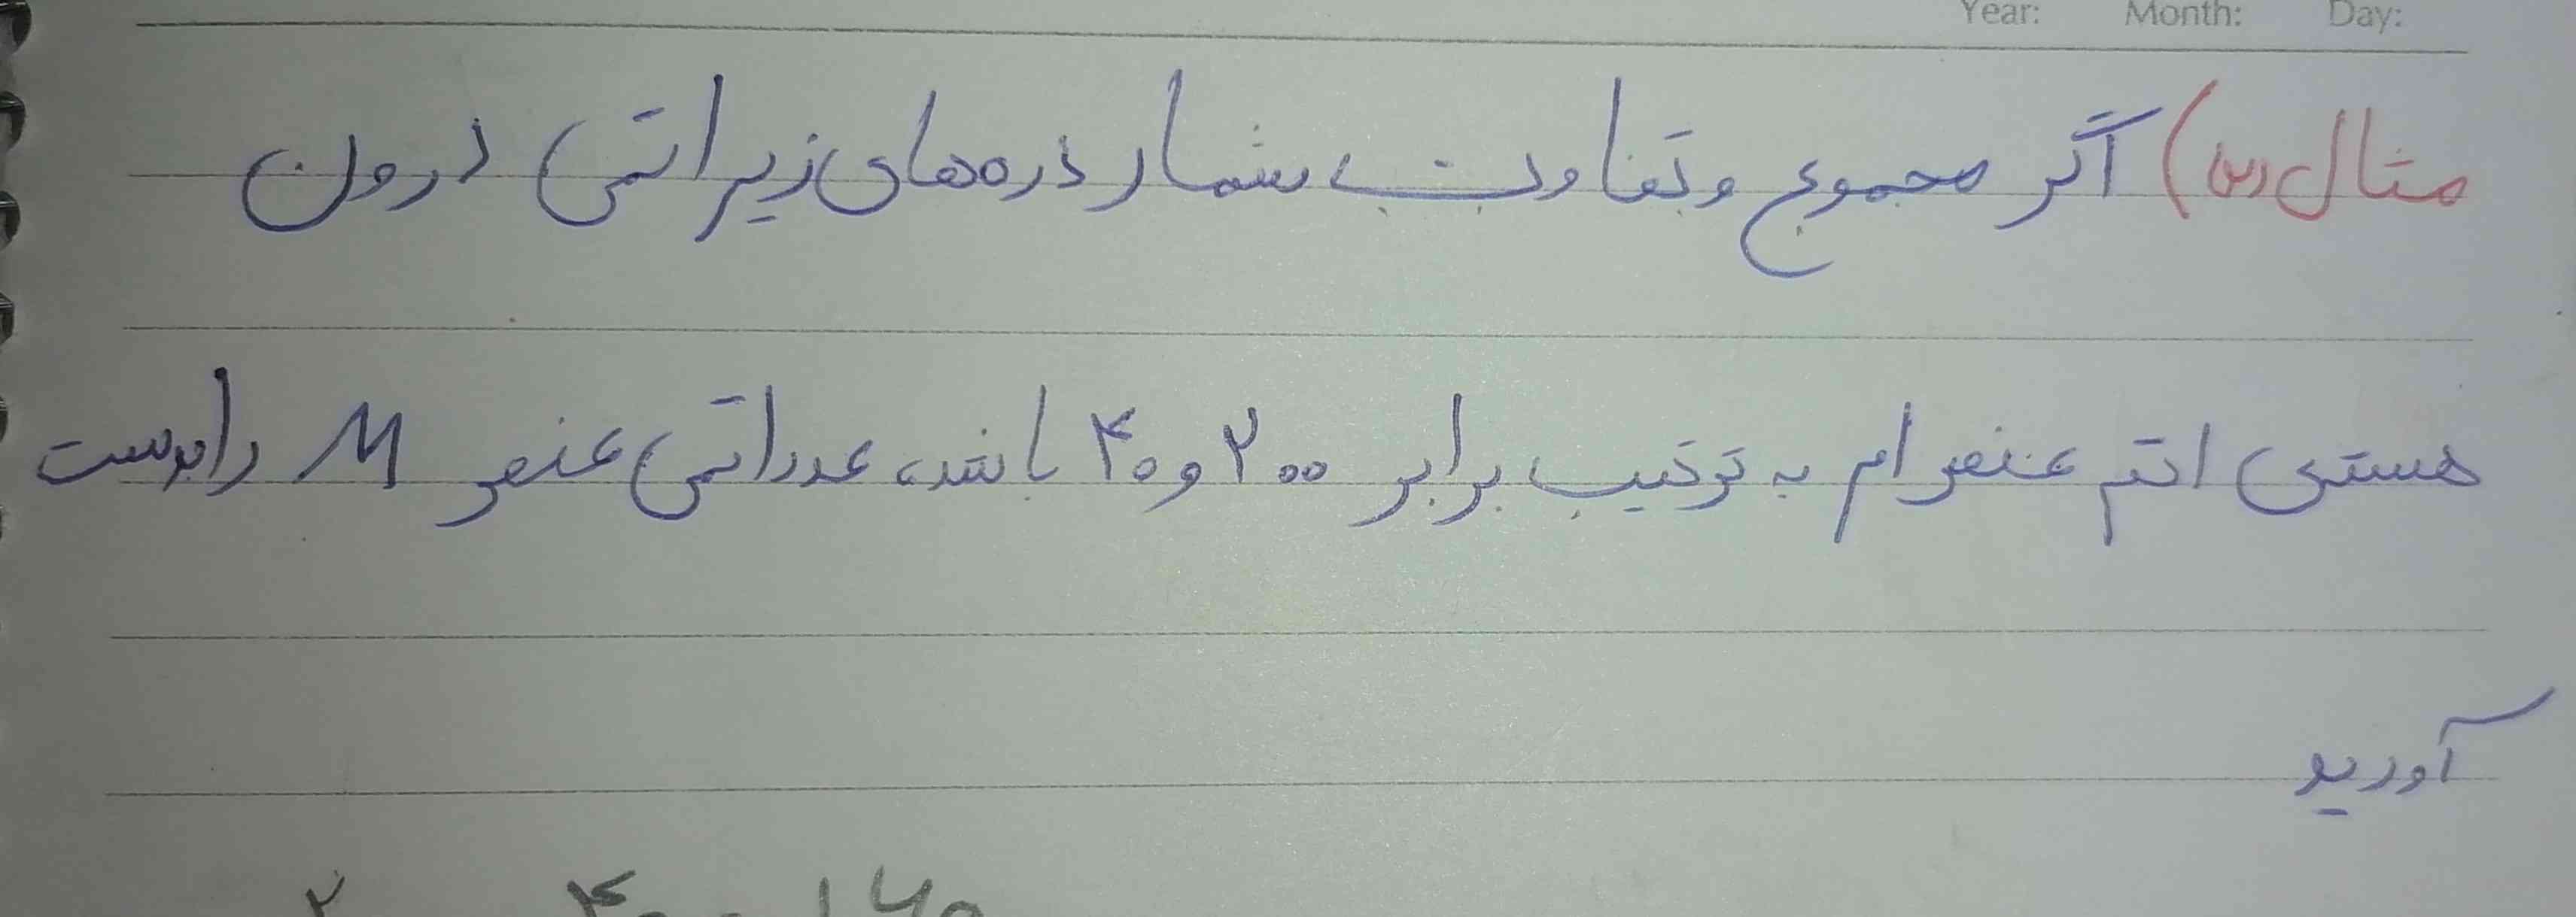 Year: Month: Day:
مثال درس) اگر مجموع و تفاوت شمار ذره‌های زیراتمی درون
هسته‌ی اتم عنصر ام به ترتیب برابر ۲۰۰ و ۴۰ باشد، عدد اتمی عنصر M را بدست
آورید